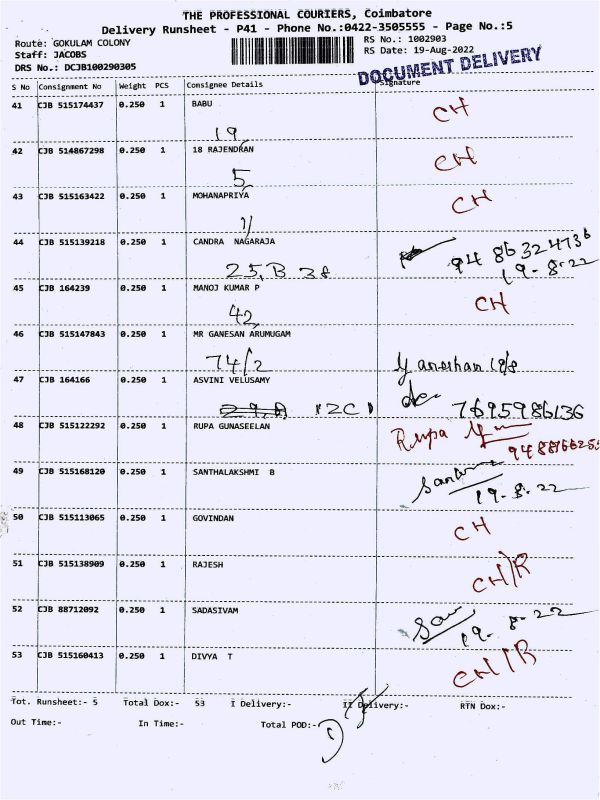 THE PROFESSIONAL COURIERS, Coimbatore
Delivery Runsheet - P41 - Phone No.:0422-3505555 - Page No.:5
Route: GOKULAM COLONY
RS No.: 1002903
Staff: JACOBS
RS Date: 19-Aug-2022
DRS No.: DCJB100290305
DOCUMENT DELIVERY
S No Consignment No Weight PCS Consignee Details Signature
41 CJB 515174437 0.250 1 BABU CH
19
42 CJB 514867298 0.250 1 18 RAJENDRAN CH
5
43 CJB 515163422 0.250 1 MOHANAPRIYA CH
1/
44 CJB 515139218 0.250 1 CANDRA NAGARAJA 9486324736
25, B 38 19-8-22
45 CJB 164239 0.250 1 MANOJ KUMAR P CH
42
46 CJB 515147843 0.250 1 MR GANESAN ARUMUGAM
74/2
47 CJB 164166 0.250 1 ASVINI VELUSAMY
12C1 7695986136
48 CJB 515122292 0.250 1 RUPA GUNASEELAN Rupa
49 CJB 515168120 0.250 1 SANTHALAKSHMI B
19-8-22
50 CJB 515113065 0.250 1 GOVINDAN CH
51 CJB 515138909 0.250 1 RAJESH CH/R
52 CJB 88712092 0.250 1 SADASIVAM
19-8-22
53 CJB 515160413 0.250 1 DIVYA T CH/R
Tot. Runsheet:- 5 Total Dox:- 53 I Delivery:- II Delivery:- RTN Dox:-
Out Time:- In Time:- Total POD:-